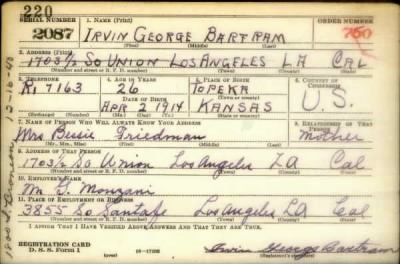 220
SERIAL NUMBER 1. NAME (Print) ORDER NUMBER
2087 IRVIN GEORGE BARTRAM 750
(First) (Middle) (Last)
2. ADDRESS (Print)
1703½ SO UNION LOS ANGELES LA CAL
(Number and street or R. F. D. number) (Town) (County) (State)
3. TELEPHONE 4. AGE IN YEARS 5. PLACE OF BIRTH 6. COUNTRY OF CITIZENSHIP
RI 7163 26 TOPEKA U.S.
DATE OF BIRTH (Town or county)
APR 2 1914 KANSAS
(Exchange) (Number) (Mo.) (Day) (Yr.) (State or country)
7. NAME OF PERSON WHO WILL ALWAYS KNOW YOUR ADDRESS 8. RELATIONSHIP OF THAT PERSON
Mrs Friedman Mother
(Mr., Mrs., Miss) (First) (Middle) (Last)
9. ADDRESS OF THAT PERSON
1703½ So Union Los Angeles LA Cal
(Number and street or R. F. D. number) (Town) (County) (State)
10. EMPLOYER'S NAME
Mr G. Monzani
11. PLACE OF EMPLOYMENT OR BUSINESS
3855 So Santa Fe Los Angeles LA Cal
(Number and street or R. F. D. number) (Town) (County) (State)
I AFFIRM THAT I HAVE VERIFIED ABOVE ANSWERS AND THAT THEY ARE TRUE.
REGISTRATION CARD
D. S. S. Form 1 (over) 16—17105 Irvin George Bartram
(Registrant's signature)